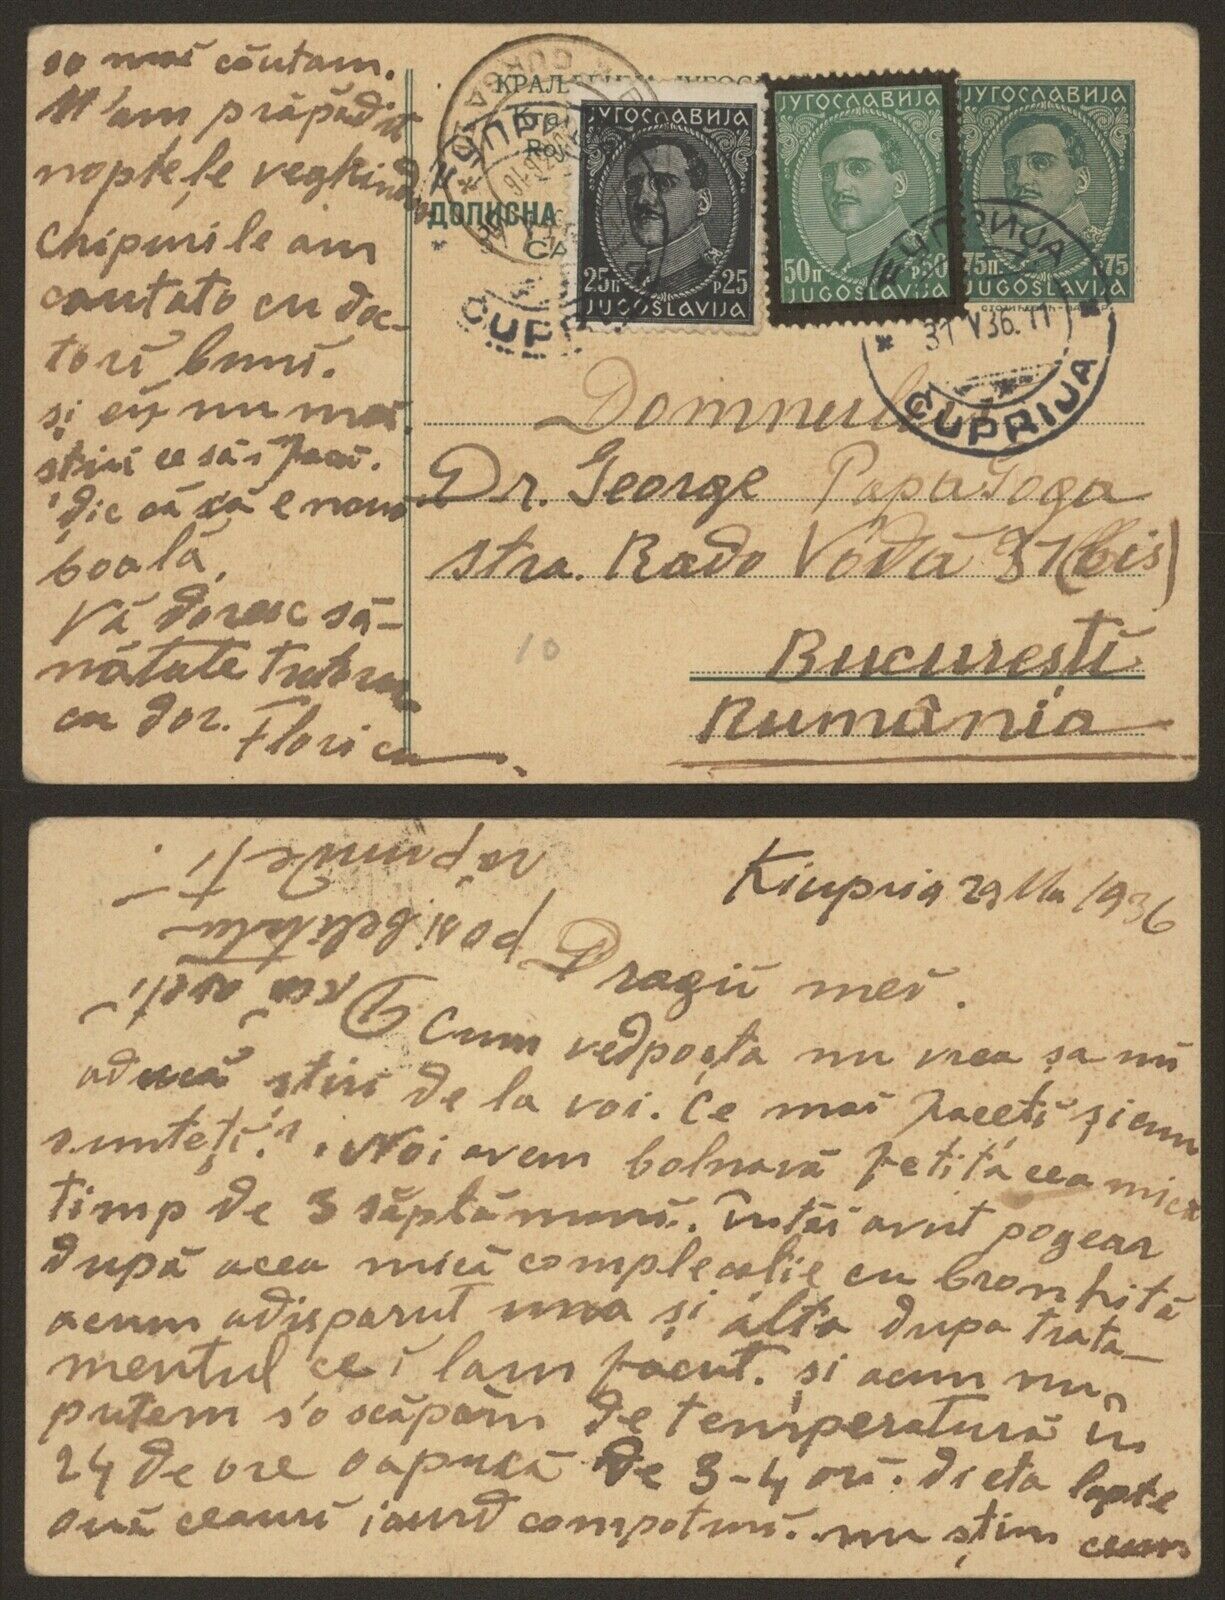 so mai căutam.
M'am prăpădit
nopțele veghind
Chipurile am
cautato cu doc-
tori buni.
și eu nu mai
știu ce să-i fac.
dic că că e noua
boală,
Vă doresc să-
nătate tuturor
cu dor.
Florica
КРАЉЕВИНА
ДОПИСНА
ЈУГОСЛАВИЈА
25п P25
JUGOSLAVIJA
ЈУГОСЛАВИЈА
50п P50
JUGOSLAVIJA
ЈУГОСЛАВИЈА
75п P75
JUGOSLAVIJA
ЋУПРИЈА
31 V 36. 11
ĆUPRIJA
Domnului
Dr. George PapaGoga
stra. Radu Vodă 31 (bis)
București
Rumânia
10
Kiupria 29 Ma 1936
Dragii mei.
Cum ved poșta nu vrea sa nu
aducă știri de la voi. Ce mai faceți și cum
sunteți? Noi avem bolnavă fetița cea mică
timp de 3 săptămuni. Întăi avut pogear
după acea mică complealie cu bronhită
acum adisparut una și alta dupa trata-
mentul ce i lam facut. și acum nu
putem s'o scăpăm de temperatură în
24 de ore o apucă de 3-4 ori. dieta lapte
ouă ceaiuri iaurd compoturi. nu știm cum
rea aveți
posibelitatea
răspundeți